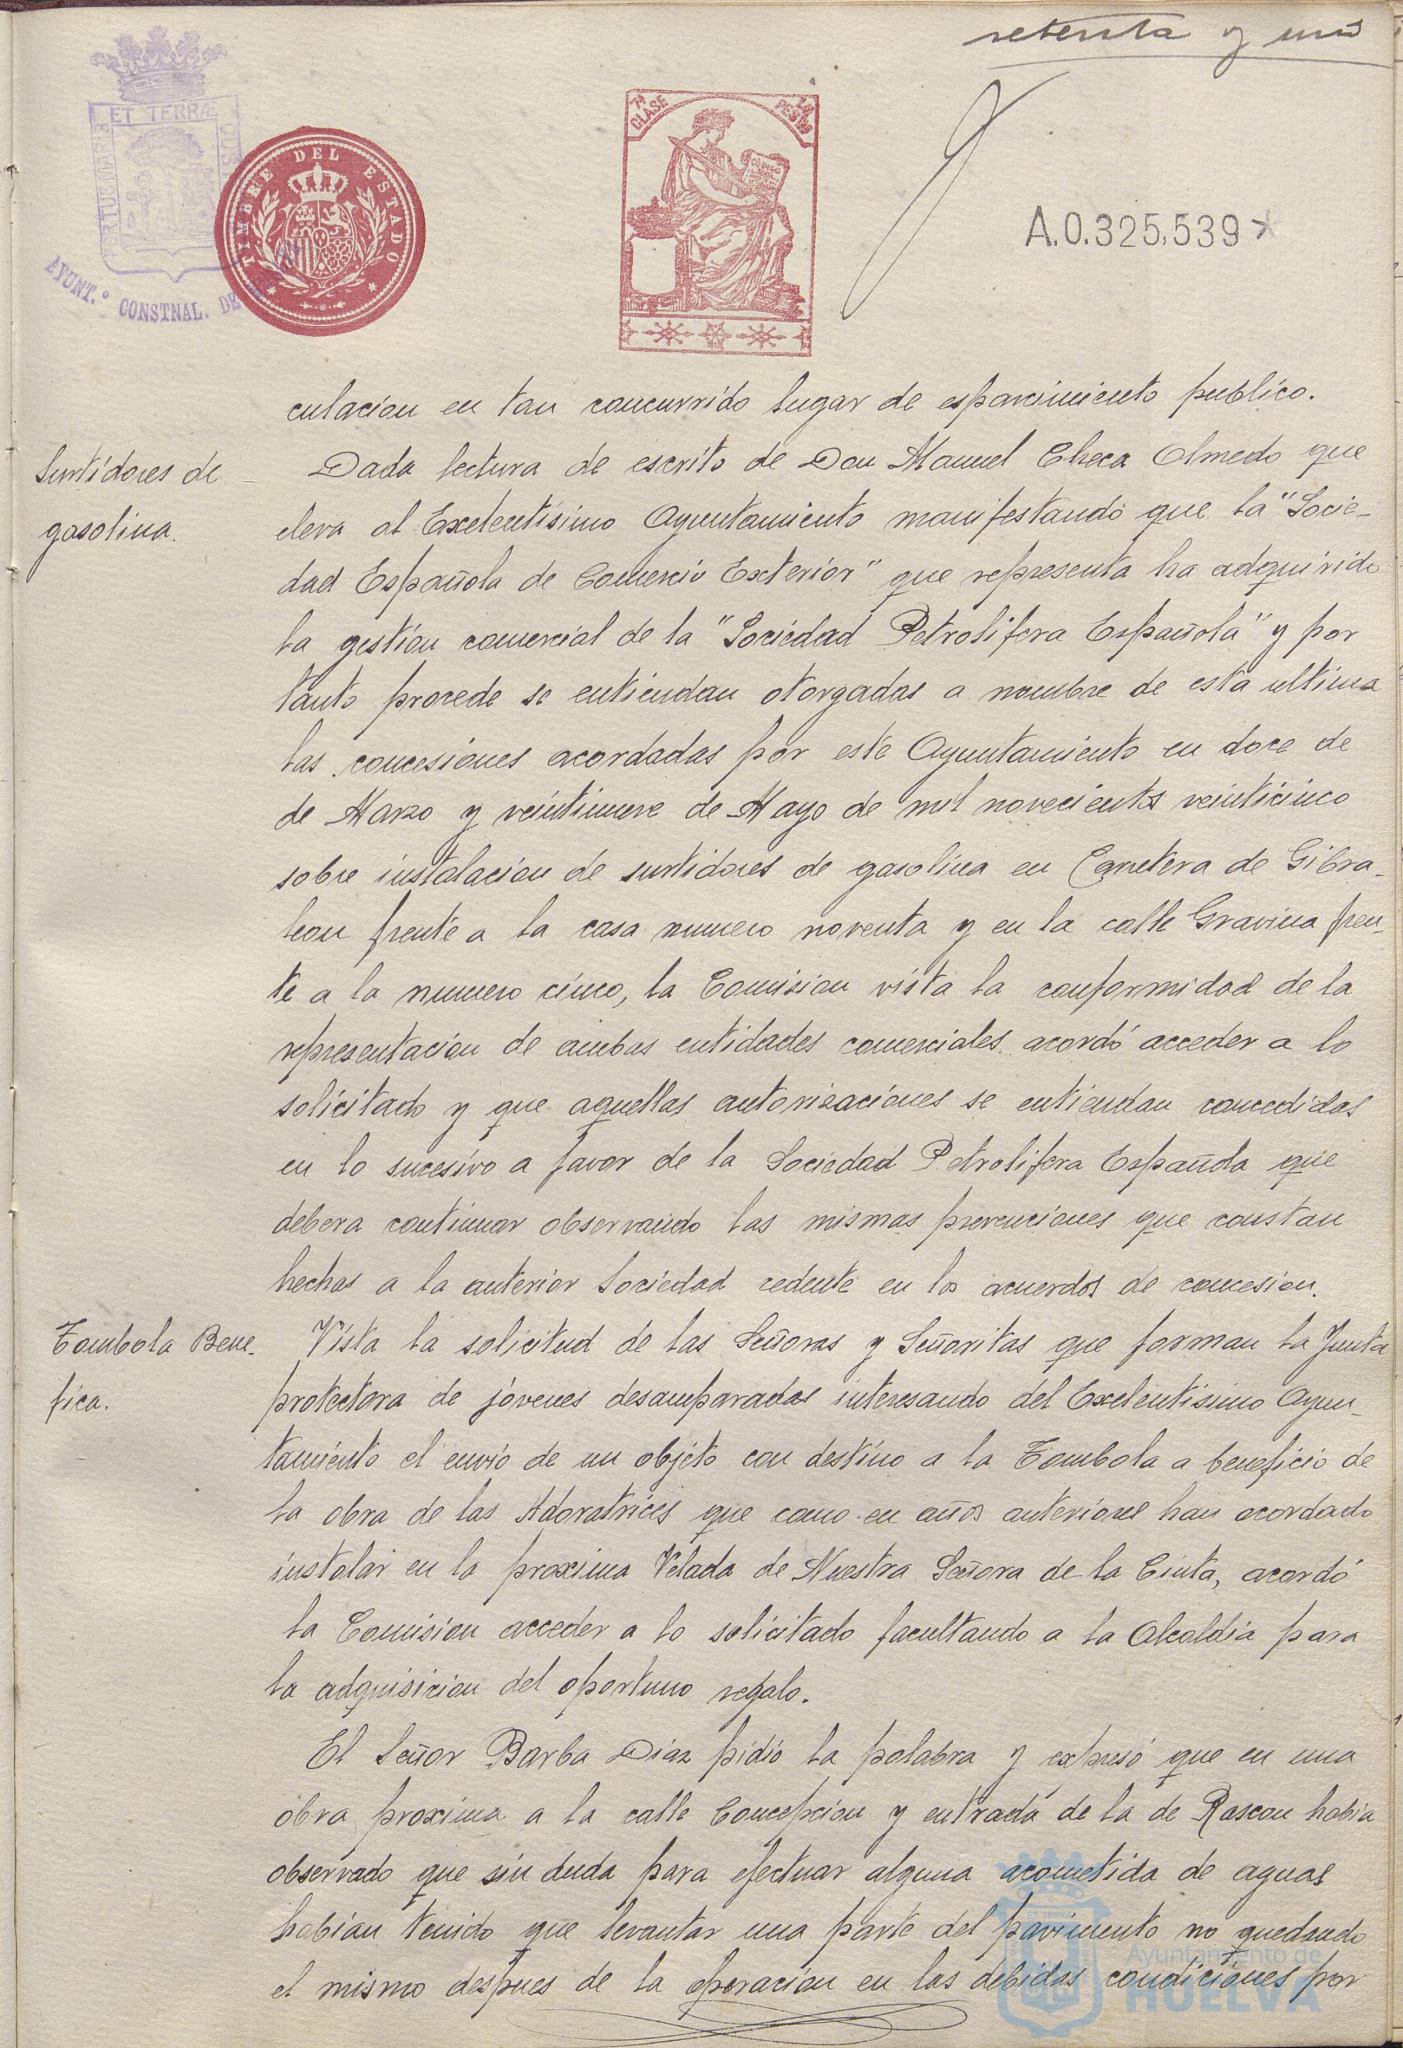 setenta y uno
PORTUS MARIS ET TERRÆ CUSTODIA
AYUNT.º CONSTNAL. DE
TIMBRE DEL ESTADO
7ª CLASE
PESTS
A.0.325,539*
culacion en tan concurrido lugar de esparcimiento publico.
Surtidores de
gasolina.
Dada lectura de escrito de Don Manuel Checa Olmedo que
eleva al Exelentisimo Ayuntamiento manifestando que la "Socie-
dad Española de Comercio Exterior" que representa ha adquirido
la gestion comercial de la "Sociedad Petrolifera Española" y por
tanto procede se entiendan otorgadas a nombre de esta ultima
las concesiones acordadas por este Ayuntamiento en doce de
de Marzo y veintinueve de Mayo de mil novecientos veinticinco
sobre instalacion de surtidores de gasolina en Carretera de Gibra-
leon frente a la casa numero noventa y en la calle Gravina fren-
te a la numero cinco, la Comision vista la conformidad de la
representacion de ambas entidades comerciales acordó acceder a lo
solicitado y que aquellas autorizaciones se entiendan concedidas
en lo sucesivo a favor de la Sociedad Petrolifera Española que
debera continuar observando las mismas prevenciones que constan
hechas a la anterior Sociedad cedente en los acuerdos de concesion.
Tombola Bene-
fica.
Vista la solicitud de las Señoras y Señoritas que forman la Junta
protectora de jóvenes desamparadas interesando del Exelentisimo Ayun-
tamiento el envio de un objeto con destino a la Tombola a beneficio de
la obra de las Adoratrices que como en años anteriores han acordado
instalar en la proxima Velada de Nuestra Señora de la Cinta, acordó
la Comision acceder a lo solicitado facultando a la Alcaldia para
la adquisicion del oportuno regalo.
El Señor Barba Diaz pidió la palabra y expresó que en una
obra proxima a la calle Concepcion y entrada de la de Rascon habia
observado que sin duda para efectuar alguna acometida de aguas
habian tenido que levantar una parte del pavimento no quedando
el mismo despues de la operacion en las debidas condiciones por
Ayuntamiento de
HUELVA